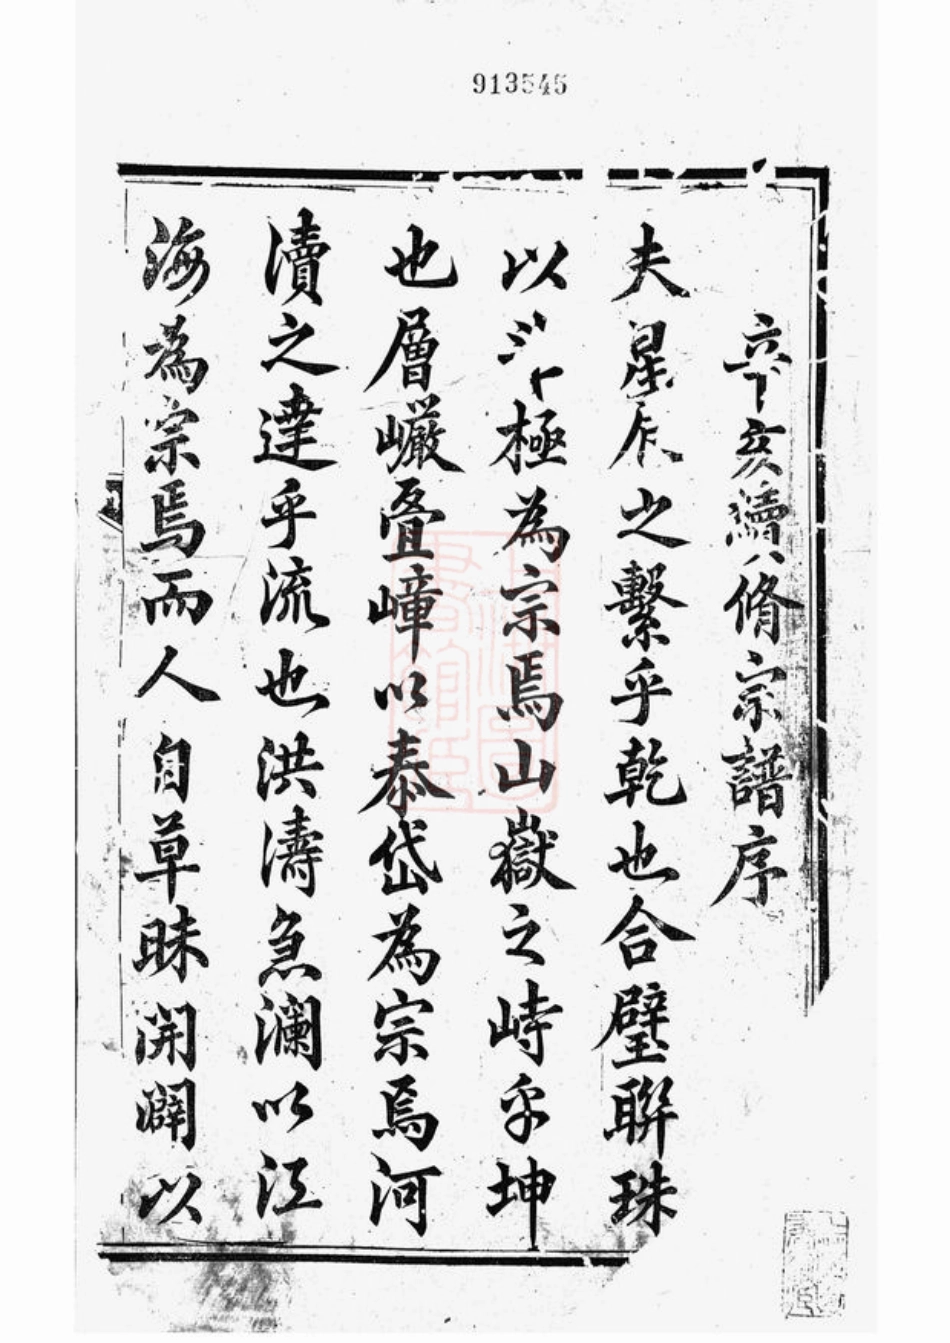 913545
辛亥續修宗譜序
夫星辰之繫乎乾也合璧聯珠
以極為宗焉山嶽之峙乎坤
也層巖疊嶂以泰岱為宗焉河
瀆之達乎流也洪濤急瀾以江
海為宗焉而人自草昧開闢以